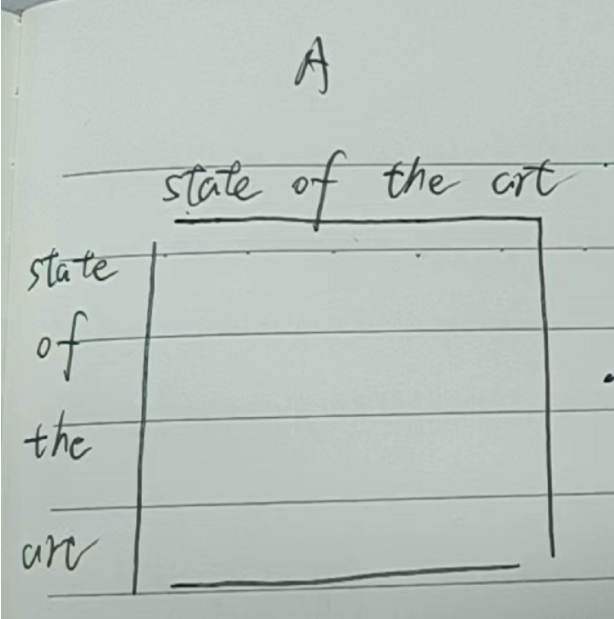 A
state of the art
state
of
the
art